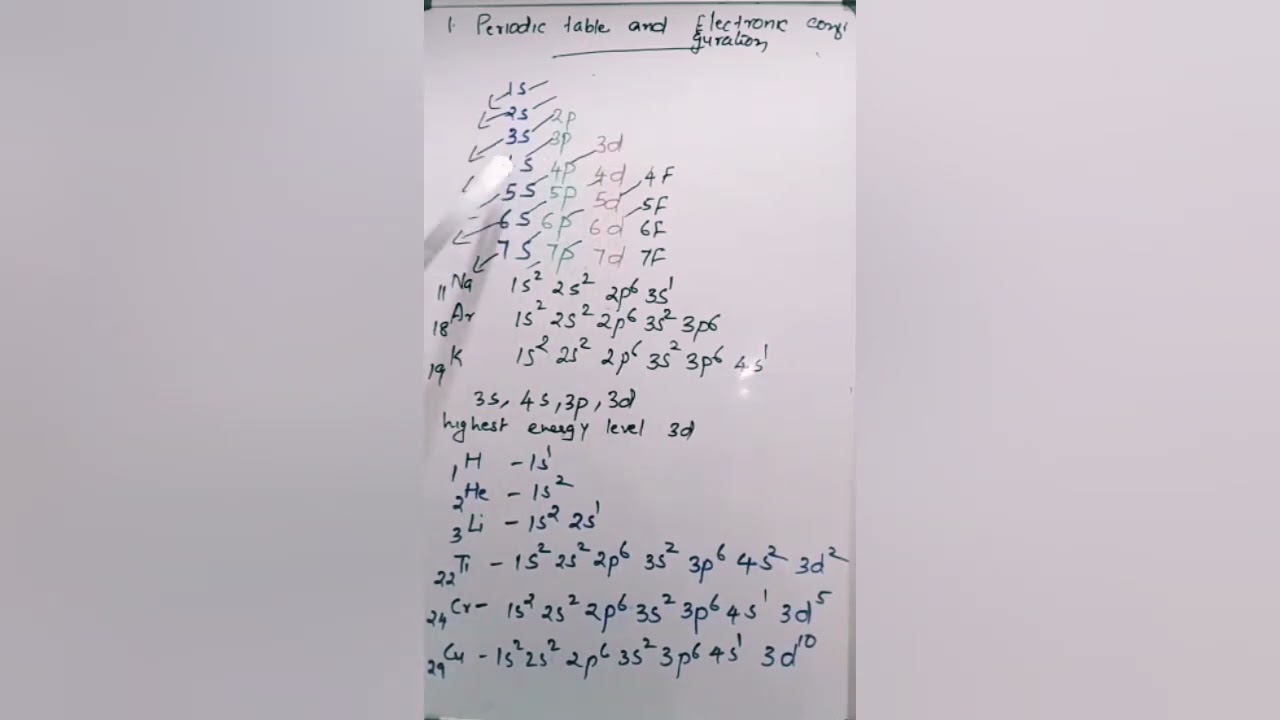 1. Periodic table and Electronic confi
guration
1s
2s 2p
3s 3p 3d
s 4p 4d 4F
5s 5p 5d 5F
6s 6p 6d 6F
7s 7p 7d 7F
₁₁Na 1s² 2s² 2p⁶ 3s¹
₁₈Ar 1s² 2s² 2p⁶ 3s² 3p⁶
₁₉K 1s² 2s² 2p⁶ 3s² 3p⁶ 4s¹
3s, 4s, 3p, 3d
highest energy level 3d
₁H - 1s¹
₂He - 1s²
₃Li - 1s² 2s¹
₂₂Ti - 1s² 2s² 2p⁶ 3s² 3p⁶ 4s² 3d²
₂₄Cr - 1s² 2s² 2p⁶ 3s² 3p⁶ 4s¹ 3d⁵
₂₉Cu - 1s² 2s² 2p⁶ 3s² 3p⁶ 4s¹ 3d¹⁰